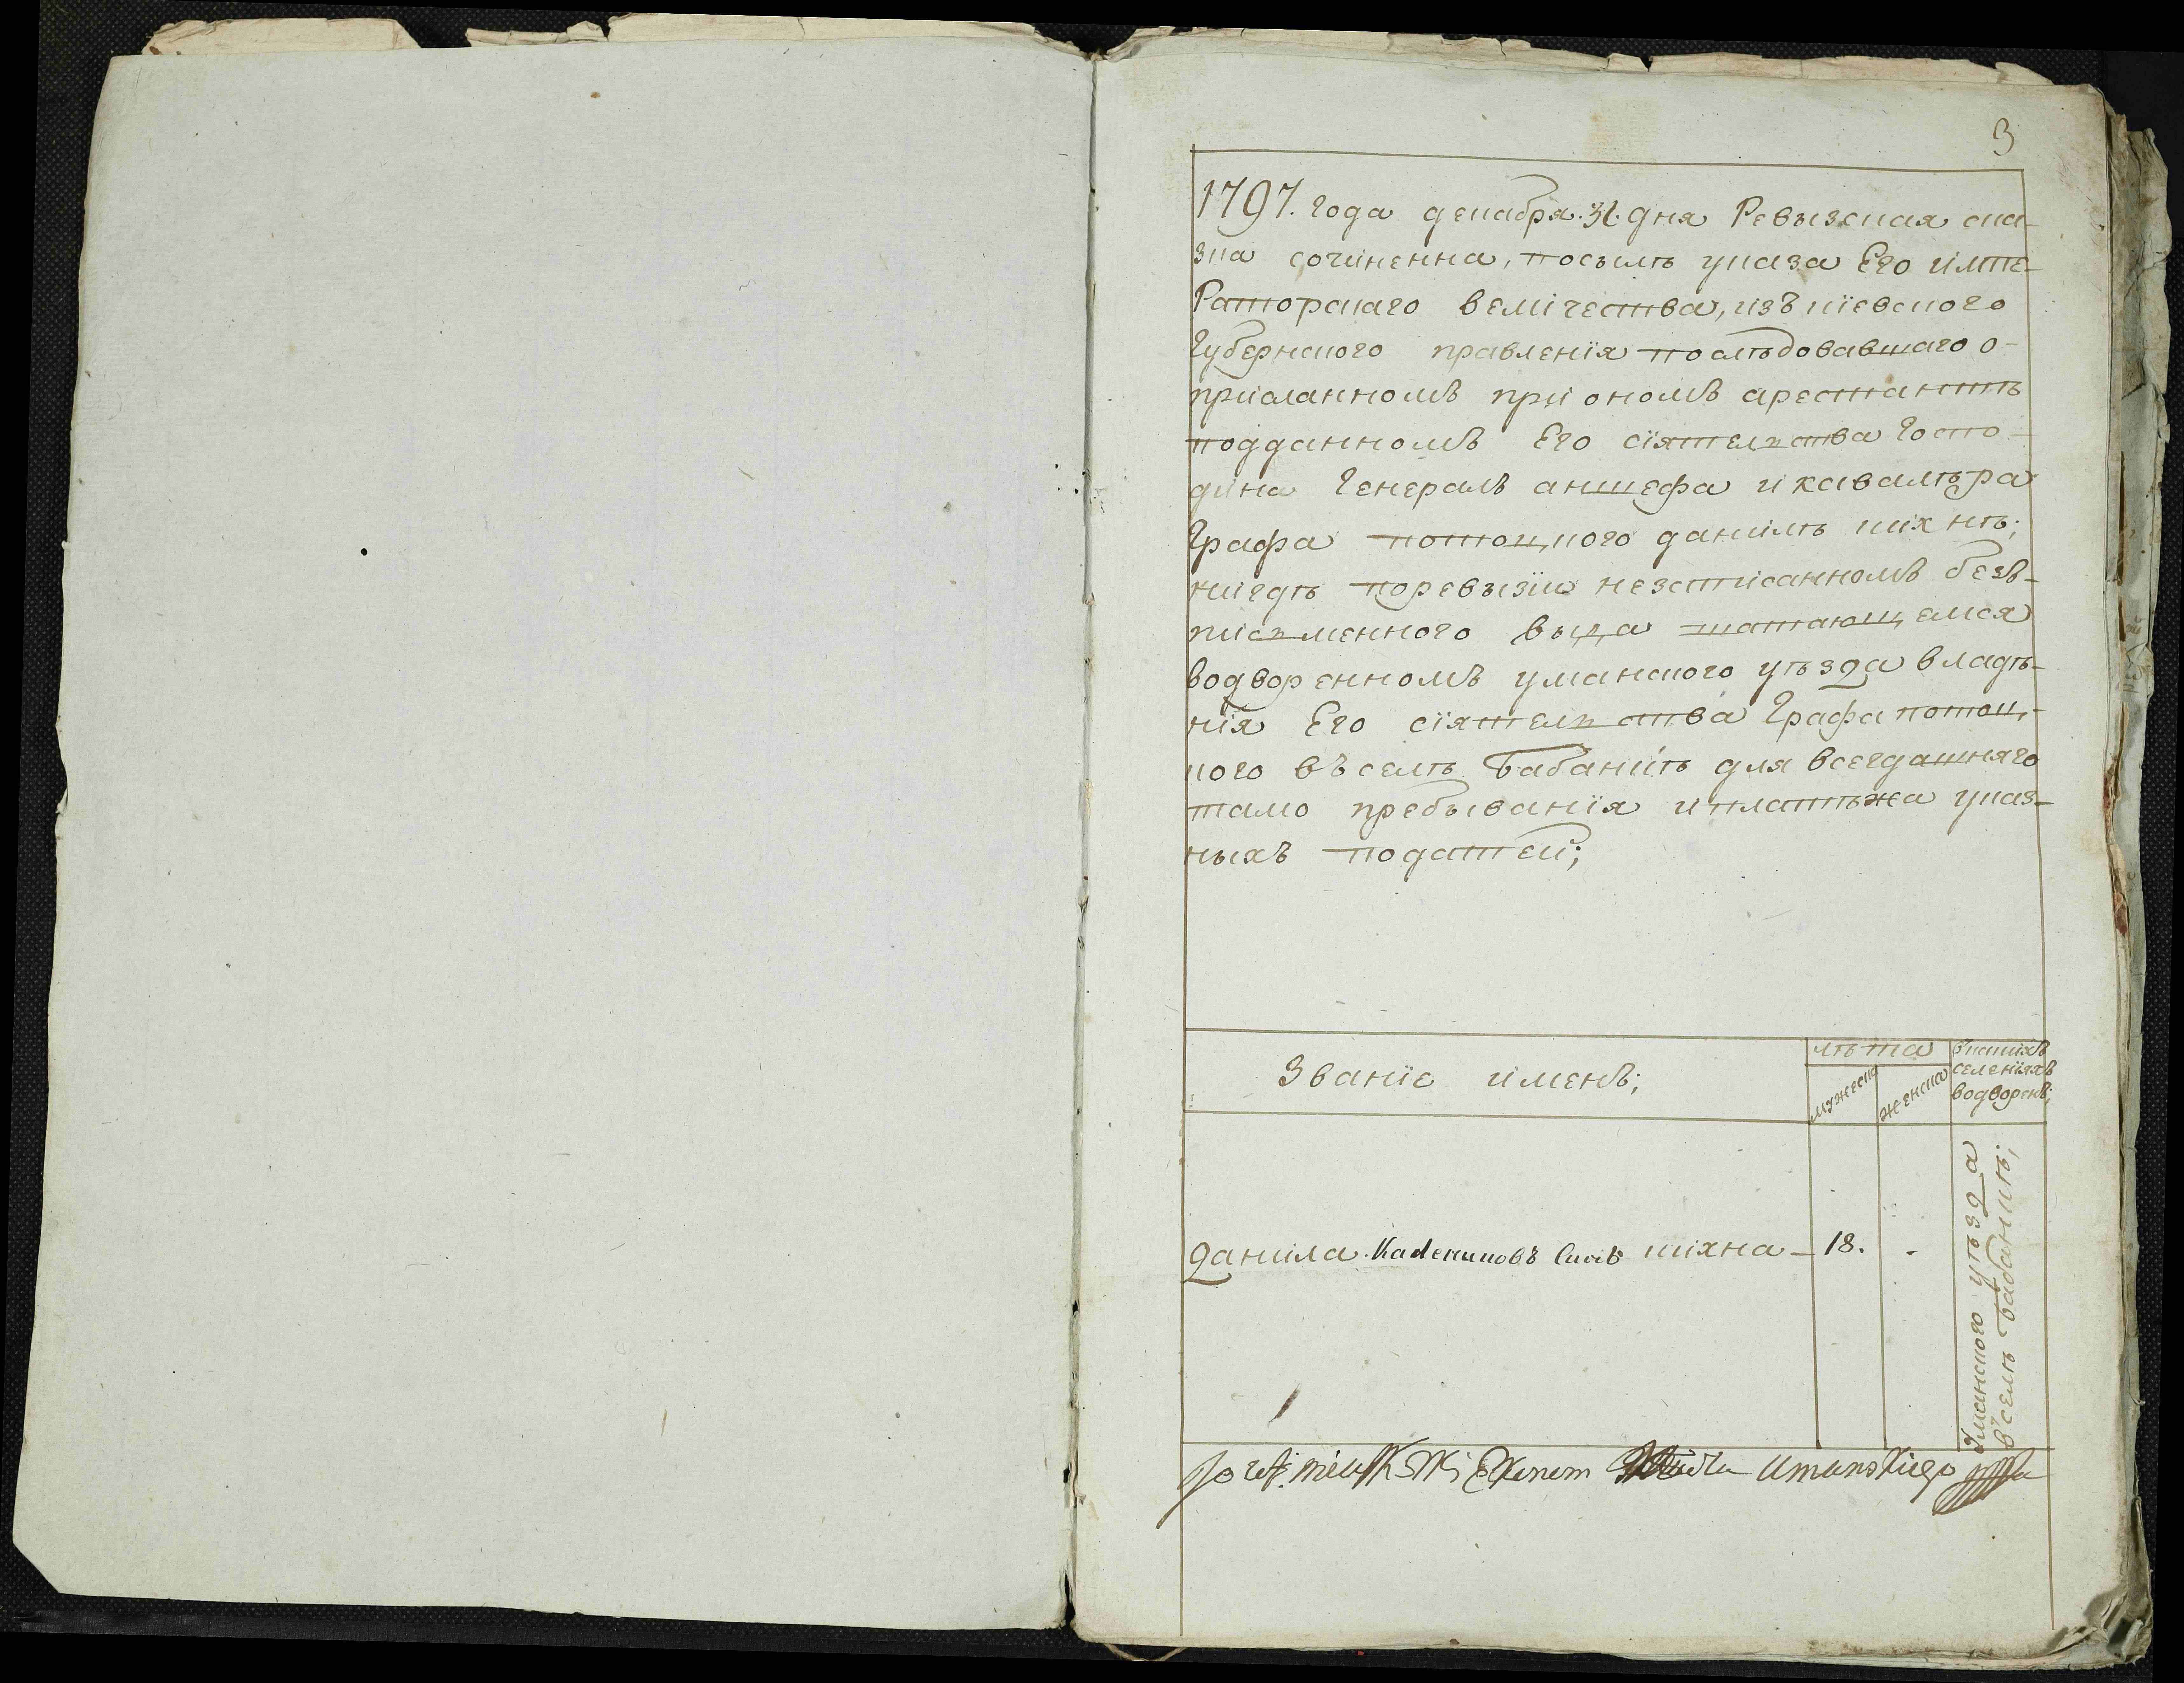 3
1797. года декабря. 31. дня Ревызская ска-
зка сочиненна, посылѣ указа Его импе-
Раторскаго величества, изъ кіевского
Губернского правленія послѣдовавшаго о-
присланномъ при ономъ арестантѣ
подданномъ Его сіятелства Госпо-
дина Генералъ аншефа и кавалѣра
Графа потоцкого данилѣ
нигдѣ поревызіи незаписанномъ безъ-
писменного выда шатающемся
водворенномъ уманского уѣзда владѣ-
нія Его сіятелства Графа потоц-
кого въ селѣ бабанкѣ для всегдашняго
тамо пребыванія и платѣжа указ-
ныхъ податей;
Званіе именъ;
лѣта
мужеска
женска
вкакихъ
селеніяхъ
водворенъ;
Данила
18.
Уманского уѣзда
в селѣ бабанкѣ;
Umanskiego